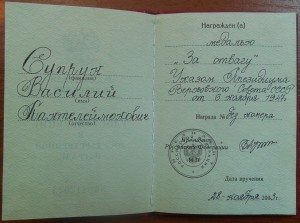 Супрун
(фамилия)
Василий
(имя)
Пантелеймонович
(отчество)
Награжден (а)
медалью
„За отвагу"
Указом Президиума
Верховного Совета СССР
от 6 ноября 1947г.
Награда № без номера
Президент
Российской Федерации
М.П.
Дата вручения
28 ноября